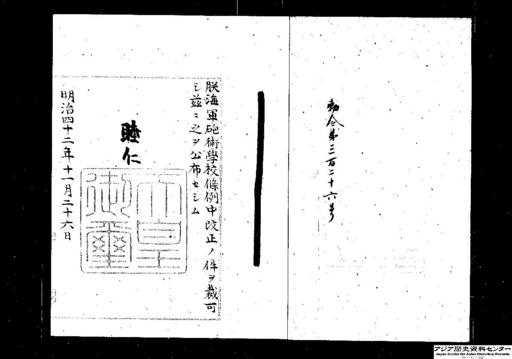 勅令第三百二十六号
朕海軍砲術學校條例中改正ノ件ヲ裁可
シ玆ニ之ヲ公布セシム
睦仁
天皇御璽
明治四十二年十一月二十六日
アジア歴史資料センター
Japan Center for Asian Historical Records